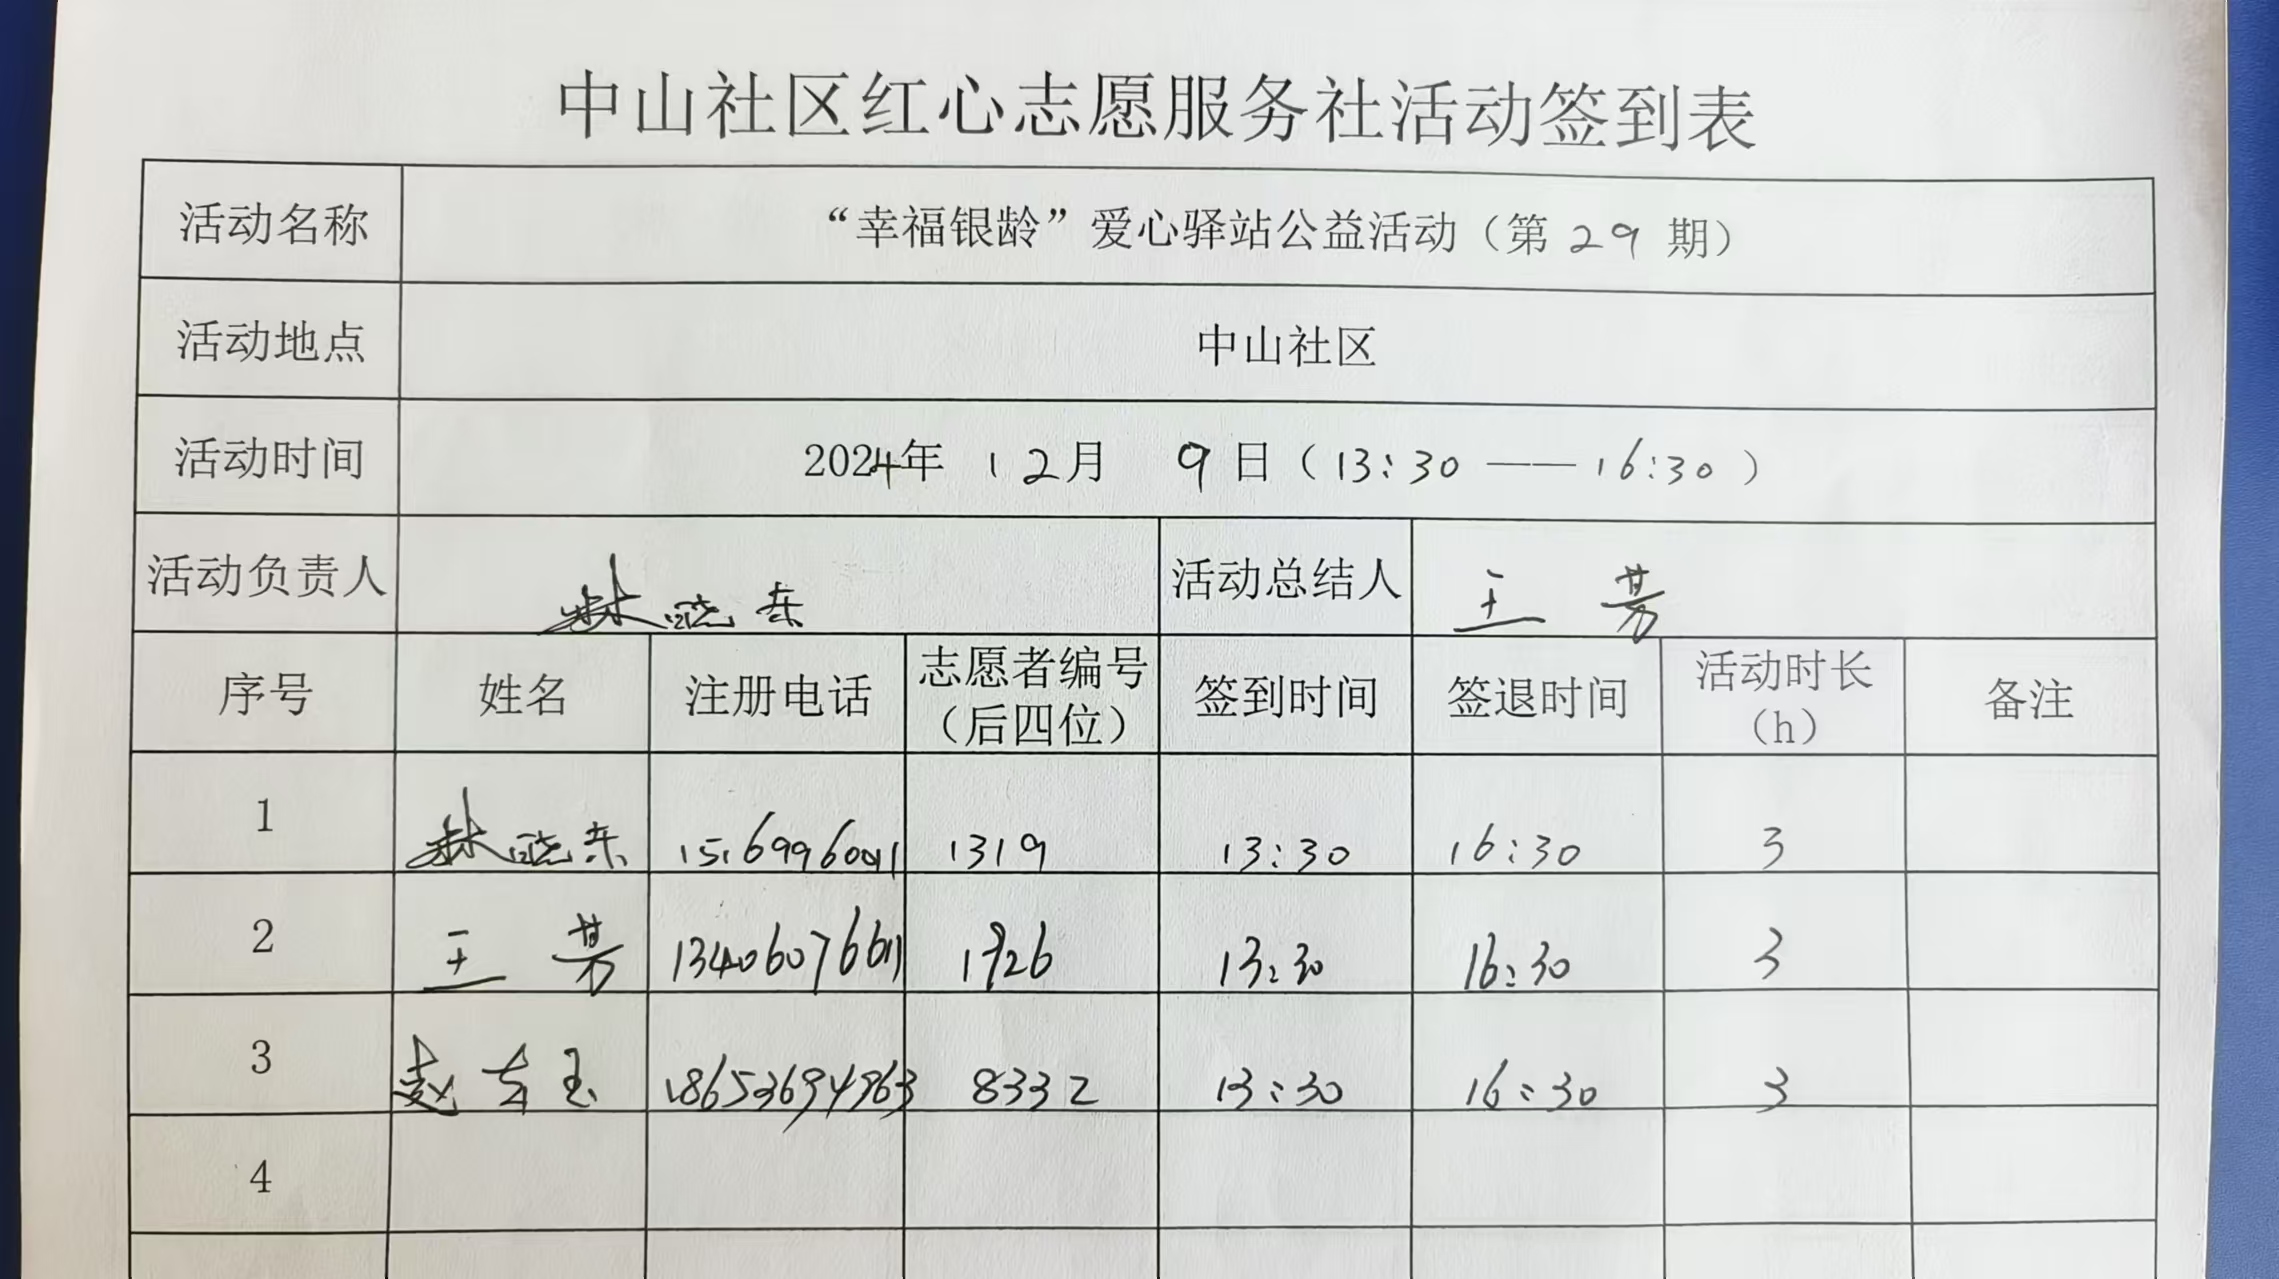 中山社区红心志愿服务社活动签到表
活动名称 “幸福银龄”爱心驿站公益活动（第 29 期）
活动地点 中山社区
活动时间 2024年 12月 9日（13:30 —— 16:30）
活动负责人 林晓东 活动总结人 王芳
序号 姓名 注册电话 志愿者编号（后四位） 签到时间 签退时间 活动时长（h） 备注
1 林晓东 15169960011 1319 13:30 16:30 3
2 王芳 13406076611 1926 13:30 16:30 3
3 赵 玉 18653694963 8332 13:30 16:30 3
4